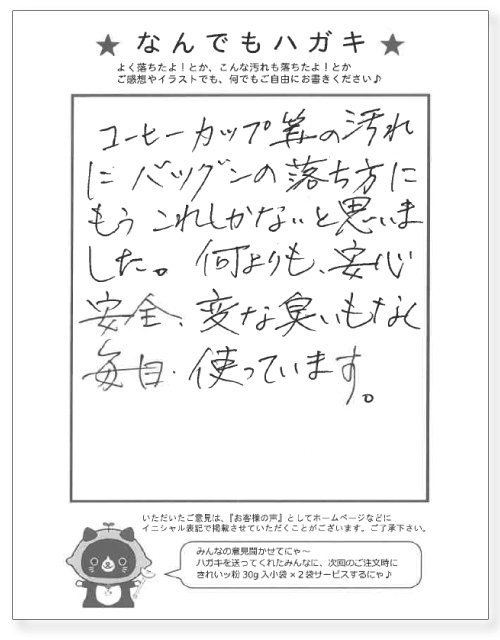 ★ なんでもハガキ ★
よく落ちたよ！とか、こんな汚れも落ちたよ！とか
ご感想やイラストでも、何でもご自由にお書きください♪
コーヒーカップ等の汚れ
にバツグンの落ち方に
もうこれしかないと思いま
した。何よりも、安心
安全、変な臭いもなく
毎日、使っています。
いただいたご意見は、『お客様の声』としてホームページなどに
イニシャル表記で掲載させていただくことがございます。ご了承下さい。
みんなの意見聞かせてにゃ～
ハガキを送ってくれたみんなに、次回のご注文時に
きれいッ粉 30g 入小袋×2袋サービスするにゃ♪